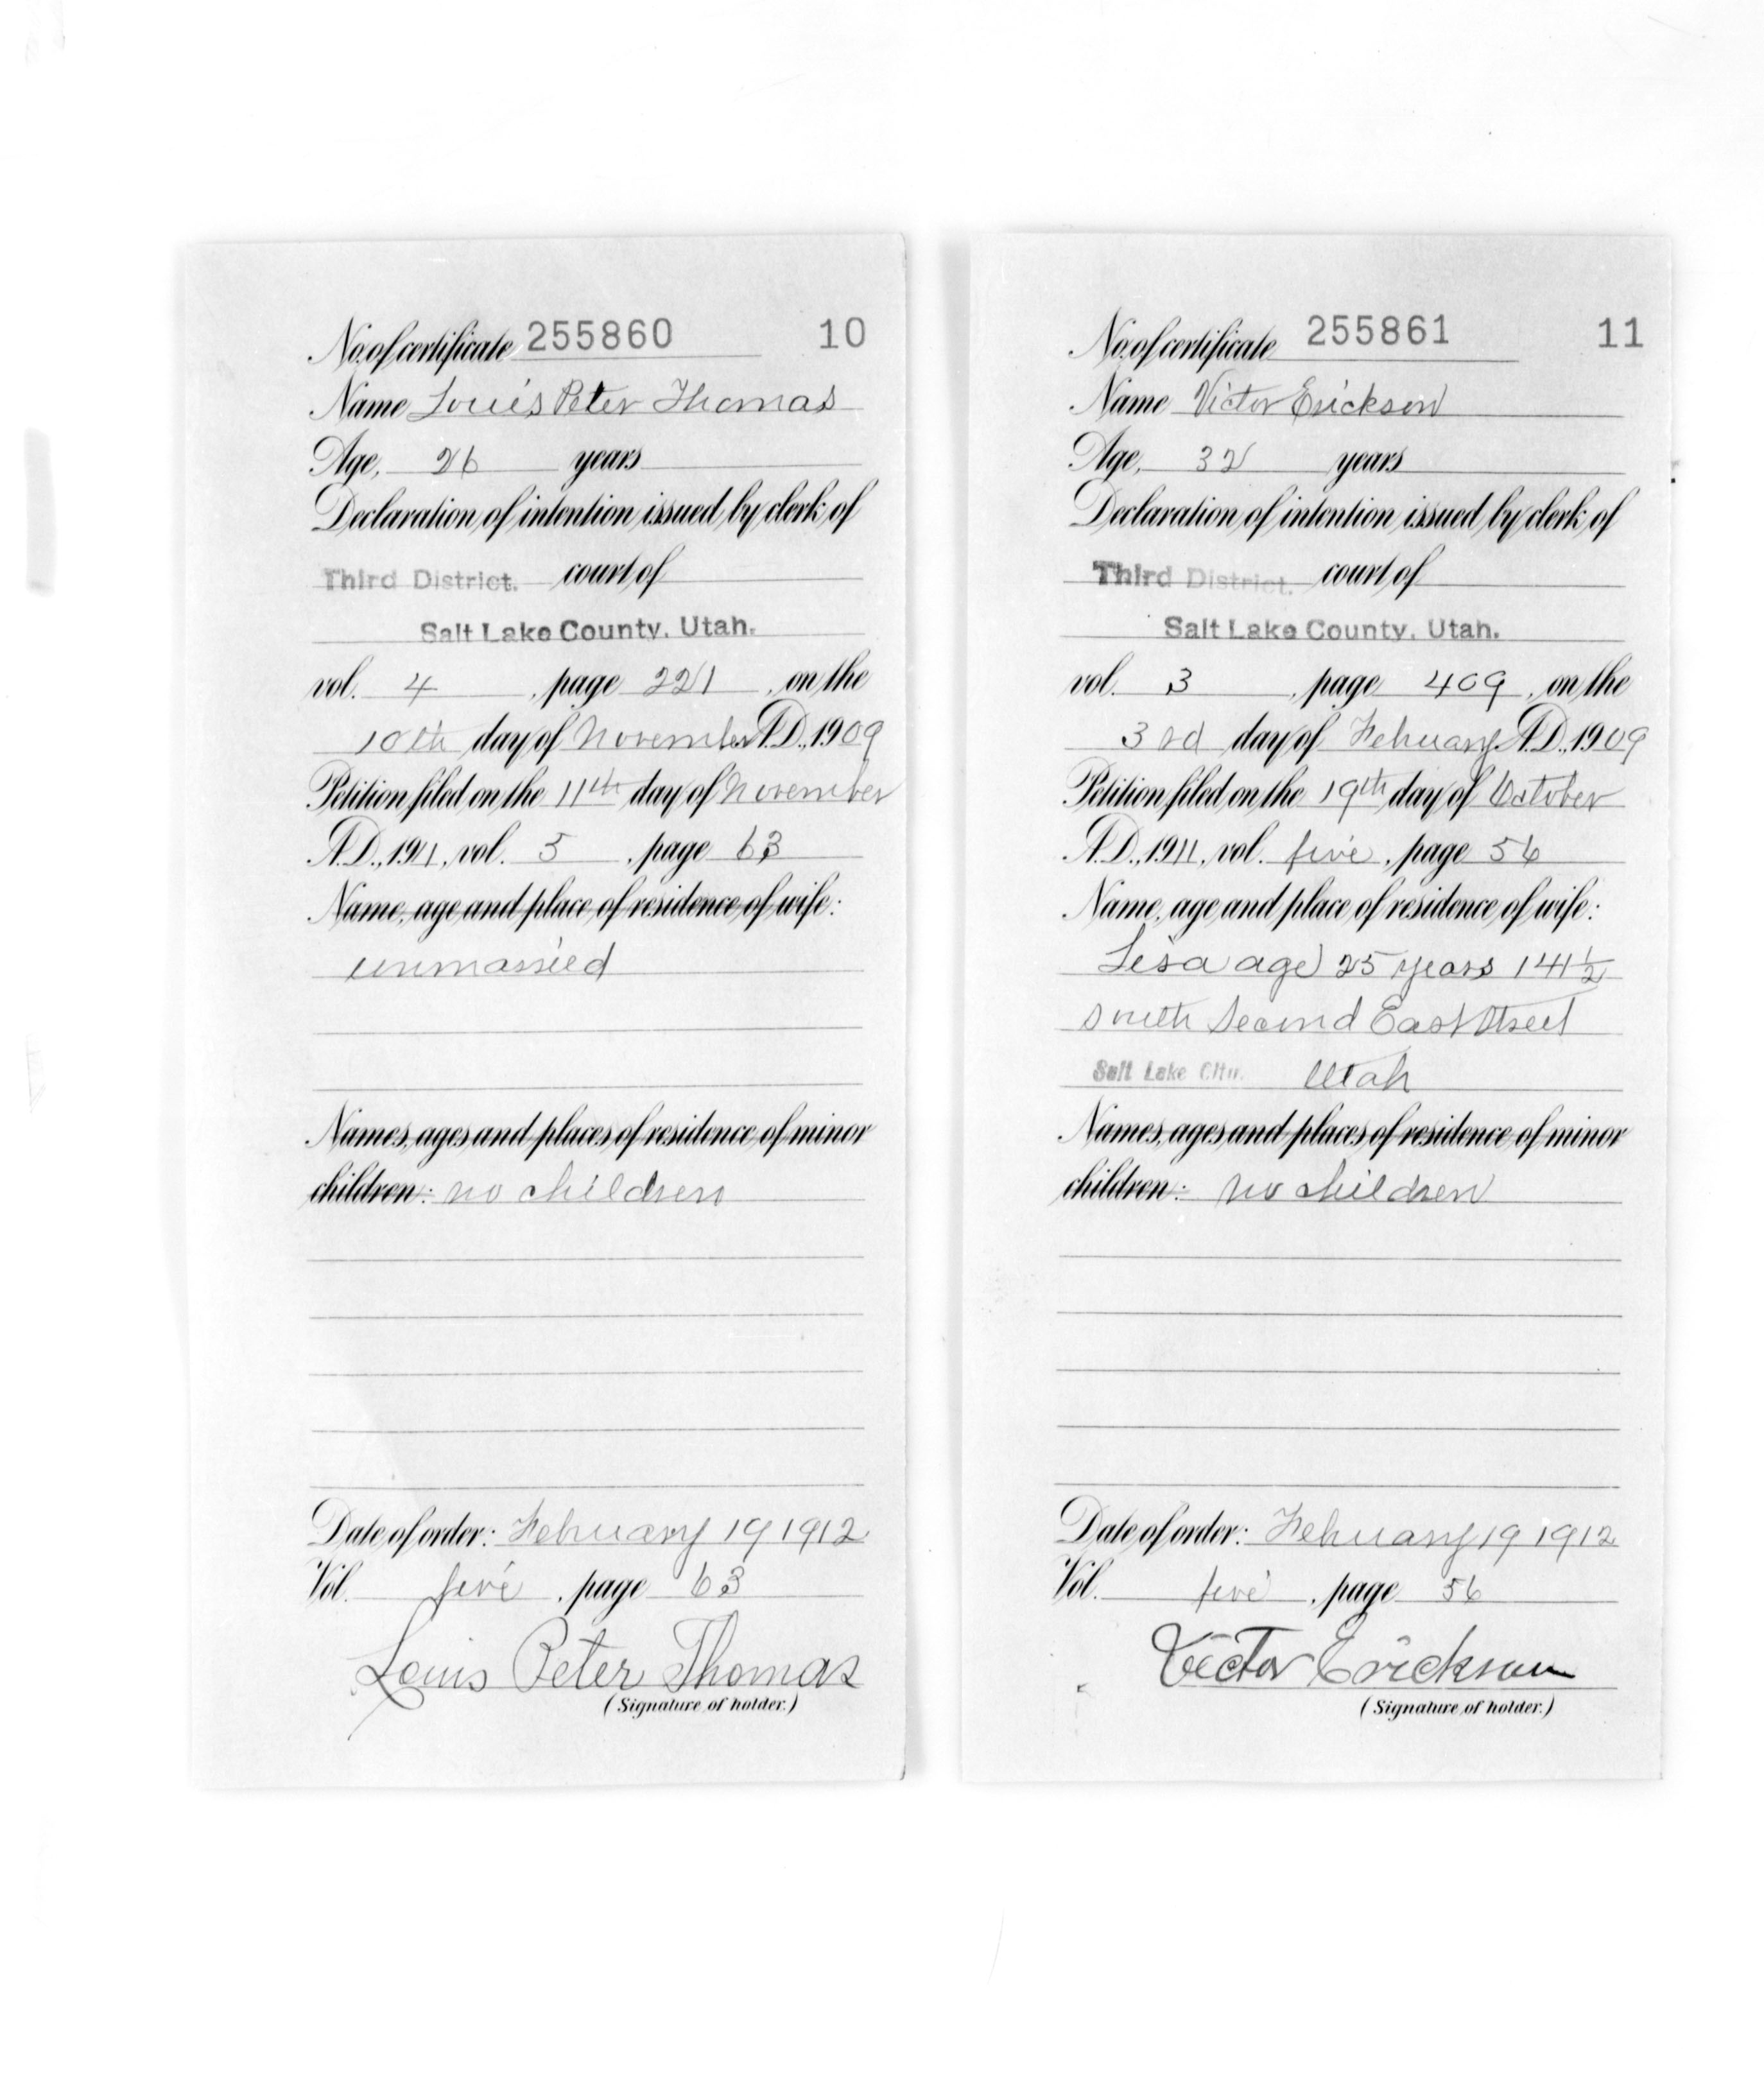 No. of certificate 255860 10
Name Louis Peter Thomas
Age, 26 years
Declaration of intention issued by clerk of
Third District. court of
Salt Lake County, Utah.
vol. 4, page 221, on the
10th day of November A.D., 1909
Petition filed on the 11th day of November
A.D., 1911, vol. 5, page 63
Name, age and place of residence of wife:
unmarried
Names, ages and places of residence of minor
children: no children
Date of order: February 19 1912
Vol. five, page 63
Louis Peter Thomas
(Signature of holder.)
No. of certificate 255861 11
Name Victor Erickson
Age, 32 years
Declaration of intention issued by clerk of
Third District. court of
Salt Lake County, Utah.
vol. 3, page 409, on the
3rd day of February A.D., 1909
Petition filed on the 19th day of October
A.D., 1911, vol. five, page 56
Name, age and place of residence of wife:
Lisa age 25 years 141½
South Second East Street
Salt Lake City. Utah
Names, ages and places of residence of minor
children: no children
Date of order: February 19 1912
Vol. five, page 56
Victor Erickson
(Signature of holder.)